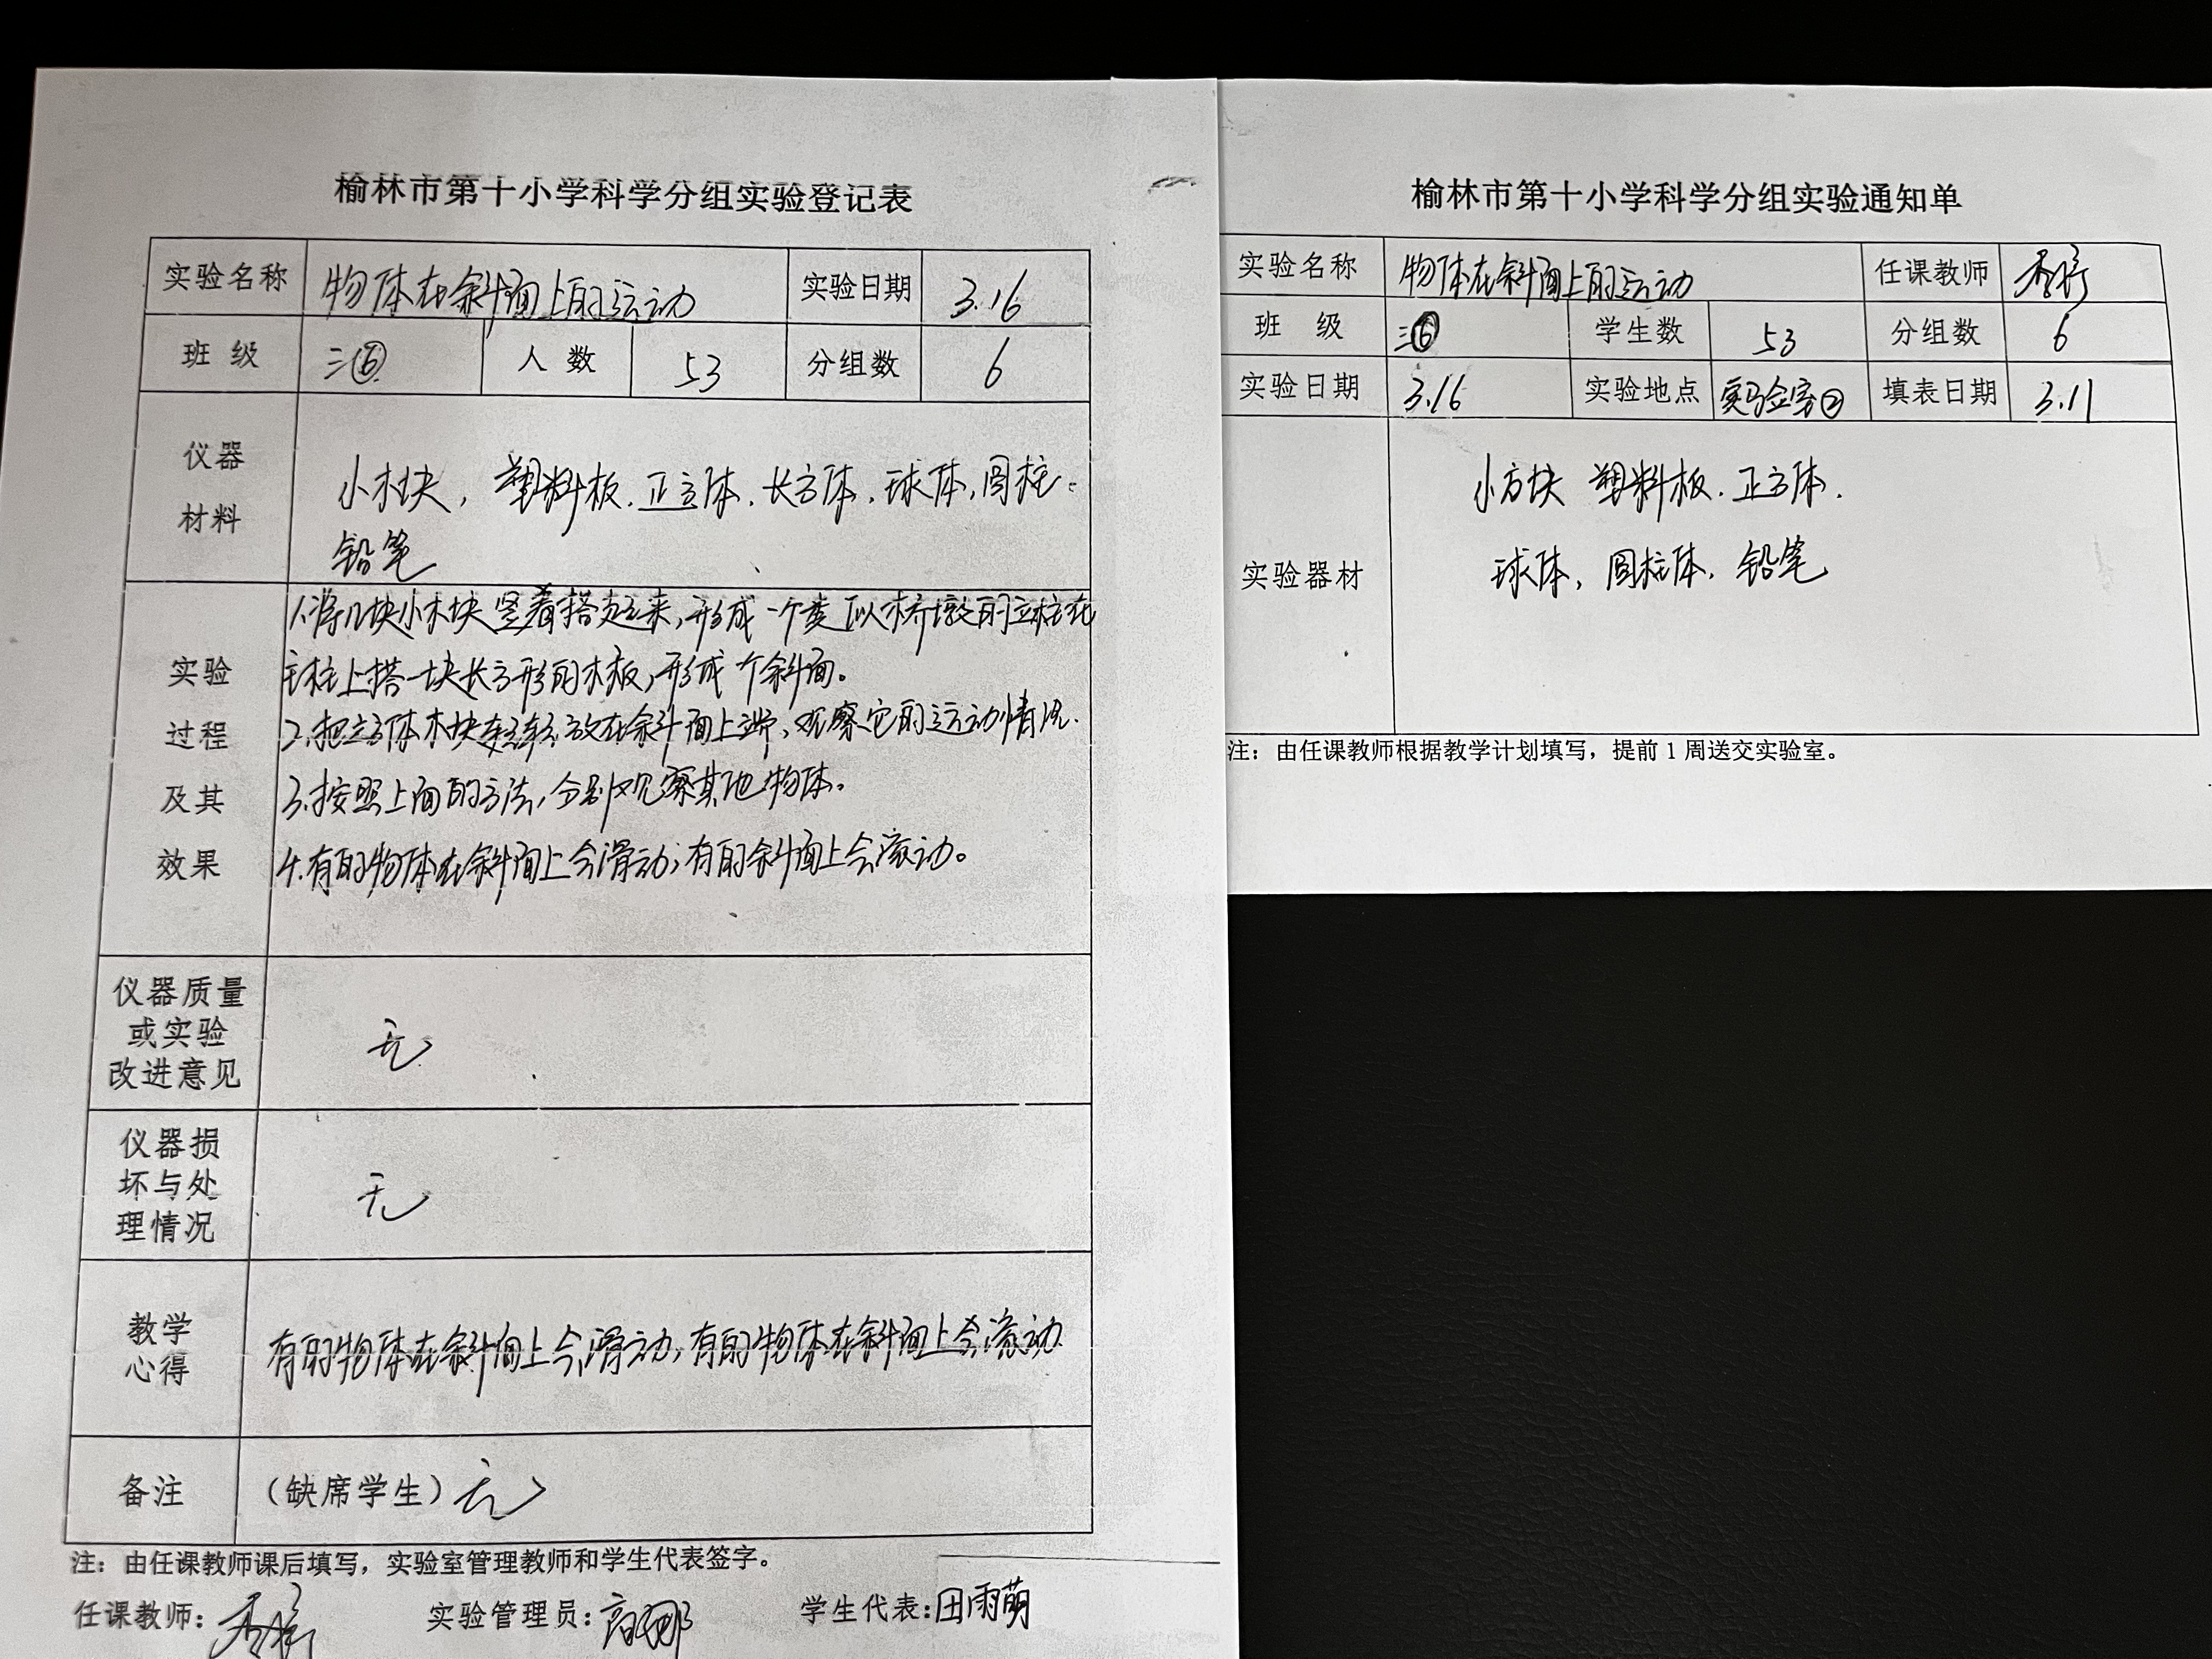 榆林市第十小学科学分组实验登记表
实验名称 物体在斜面上的运动 实验日期 3.16
班 级 三⑥ 人 数 53 分组数 6
仪器
材料
小木块，塑料板.正方体.长方体.球体,圆柱.
铅笔
实验
过程
及其
效果
1.将几块小木块竖着搭起来,形成一个类似桥墩的立柱在
主柱上搭一块长方形的木板,形成个斜面。
2.把立方体木块轻轻放在斜面上端,观察它的运动情况.
3.按照上面的方法,分别观察其他物体。
4.有的物体在斜面上会滑动;有的斜面上会滚动。
仪器质量
或实验
改进意见
无
仪器损
坏与处
理情况
无
教学
心得
有的物体在斜面上会滑动,有的物体在斜面上会滚动.
备注 （缺席学生）无
注：由任课教师课后填写，实验室管理教师和学生代表签字。
任课教师： 实验管理员：高娜 学生代表：田雨萌
榆林市第十小学科学分组实验通知单
实验名称 物体在斜面上的运动 任课教师
班 级 三⑥ 学生数 53 分组数 6
实验日期 3.16 实验地点 实验室② 填表日期 3.11
实验器材
小方块 塑料板.正方体.
球体,圆柱体.铅笔
注：由任课教师根据教学计划填写，提前 1 周送交实验室。